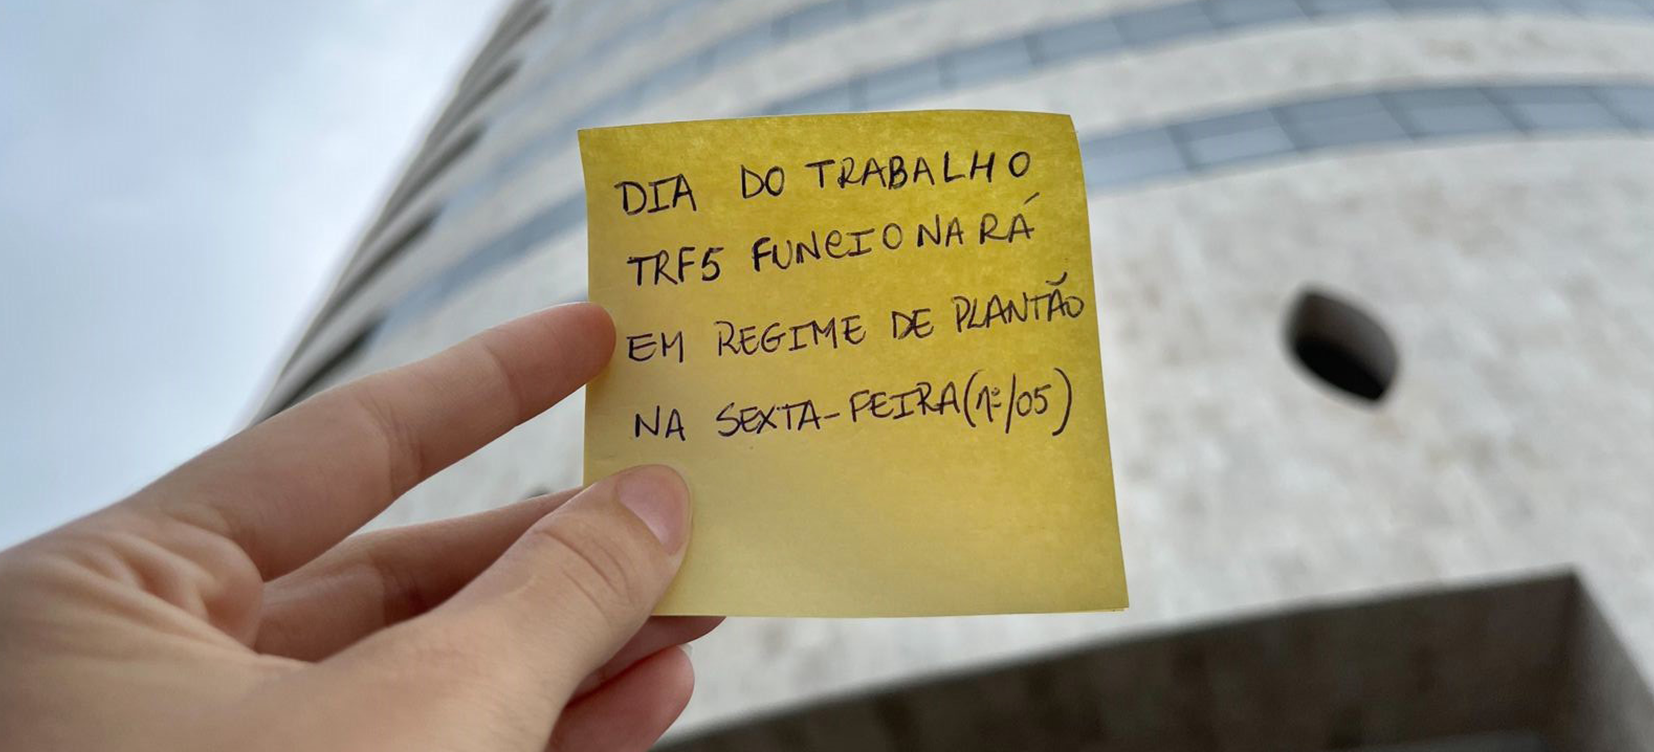 DIA DO TRABALHO
TRF5 FUNCIONARÁ
EM REGIME DE PLANTÃO
NA SEXTA-FEIRA(1º/05)